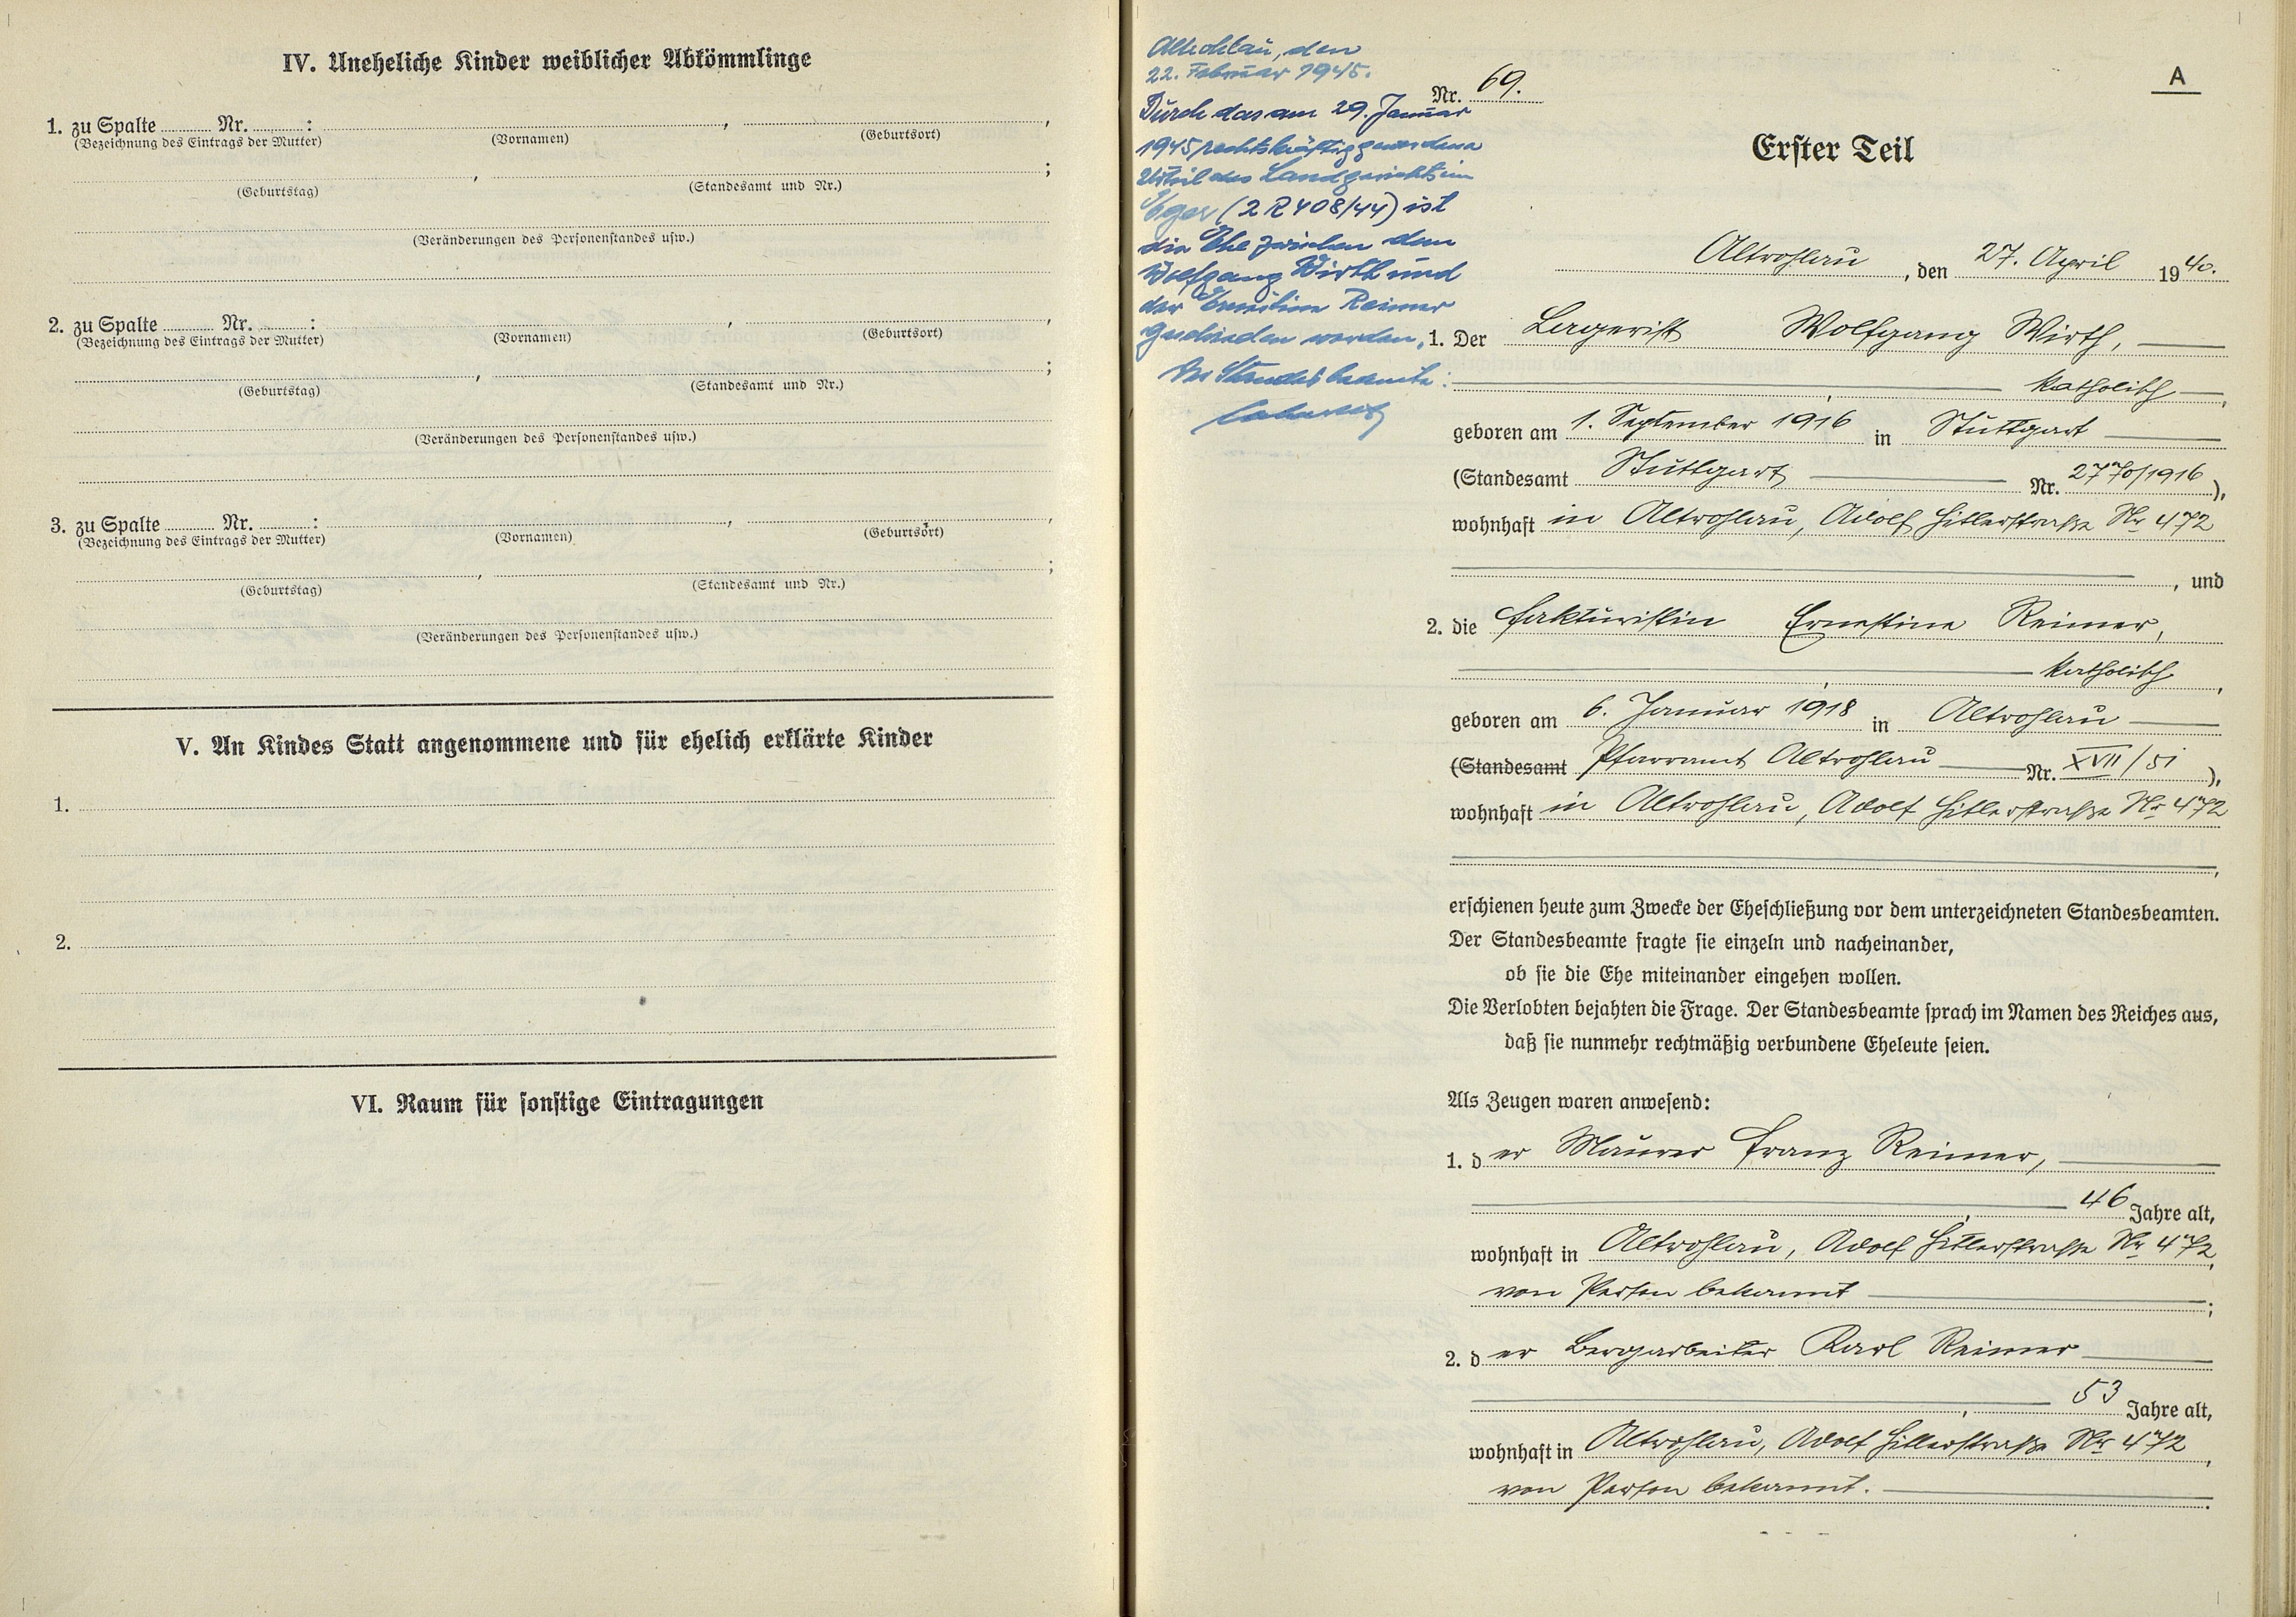 IV. Uneheliche Kinder weiblicher Abkömmlinge
1. zu Spalte ........ Nr. ........ : , ,
(Bezeichnung des Eintrags der Mutter) (Vornamen) (Geburtsort)
, ;
(Geburtstag) (Standesamt und Nr.)
(Veränderungen des Personenstandes usw.)
2. zu Spalte ........ Nr. ........ : , ,
(Bezeichnung des Eintrags der Mutter) (Vornamen) (Geburtsort)
, ;
(Geburtstag) (Standesamt und Nr.)
(Veränderungen des Personenstandes usw.)
3. zu Spalte ........ Nr. ........ : , ,
(Bezeichnung des Eintrags der Mutter) (Vornamen) (Geburtsort)
, ;
(Geburtstag) (Standesamt und Nr.)
(Veränderungen des Personenstandes usw.)
V. An Kindes Statt angenommene und für ehelich erklärte Kinder
1.
2.
VI. Raum für sonstige Eintragungen
Altrohlau, den
22. Februar 1945.
Durch das am 29. Januar
1945 rechtskräftig gewordene
Urteil des Landgerichts in
Eger (2 R 408/44) ist
die Ehe zwischen dem
Wolfgang Wirth und
der Ernestine Reimer
geschieden worden.
Der Standesbeamte:
A
Nr. 69.
Erster Teil
Altrohlau, den 27. April 1940.
1. Der Lagerist Wolfgang Wirth,
katholisch,
geboren am 1. September 1916 in Stuttgart
(Standesamt Stuttgart Nr. 2770/1916),
wohnhaft in Altrohlau, Adolf Hitlerstraße Nr 472
, und
2. die Fakturistin Ernestine Reimer,
katholisch,
geboren am 6. Januar 1918 in Altrohlau
(Standesamt Pfarramt Altrohlau Nr. XVII/51),
wohnhaft in Altrohlau, Adolf Hitlerstraße Nr 472
,
erschienen heute zum Zwecke der Eheschließung vor dem unterzeichneten Standesbeamten.
Der Standesbeamte fragte sie einzeln und nacheinander,
ob sie die Ehe miteinander eingehen wollen.
Die Verlobten bejahten die Frage. Der Standesbeamte sprach im Namen des Reiches aus,
daß sie nunmehr rechtmäßig verbundene Eheleute seien.
Als Zeugen waren anwesend:
1. der Maurer Franz Reimer,
, 46 Jahre alt,
wohnhaft in Altrohlau, Adolf Hitlerstraße Nr 472,
von Person bekannt ;
2. der Bergarbeiter Karl Reimer
, 53 Jahre alt,
wohnhaft in Altrohlau, Adolf Hitlerstraße Nr 472,
von Person bekannt.